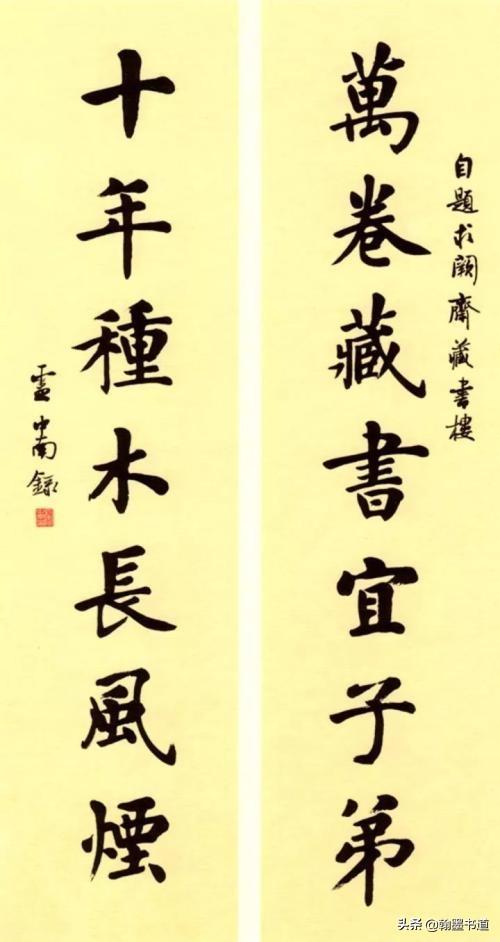 自題求闕齋藏書樓
萬卷藏書宜子弟
十年種木長風煙
盧中南錄
头条 @翰墨书道